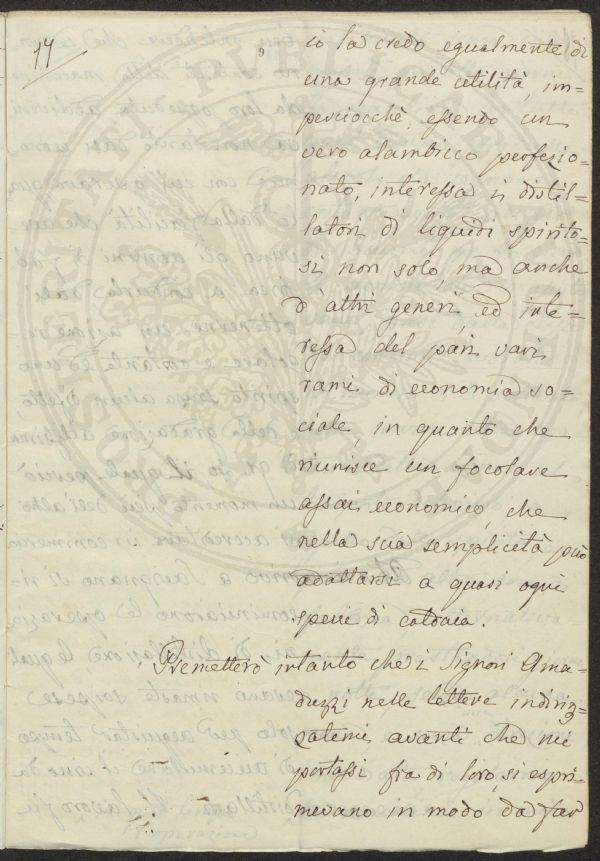 17
9
io la credo egualmente di
una grande utilità, im=
perciocchè, essendo un
vero alambicco perfezio=
nato, interessa i distil=
latori di liquidi spirito=
si non solo, ma anche
d'altri generi, ed inte=
ressa del pari varj
rami di economia so=
ciale, in quanto che
riunisce un focolare
assai economico, che
nella sua semplicità può
adattarsi a quasi ogni
specie di caldaia.
Premetterò intanto che i Signori Ama=
duzzi nelle lettere indiriz=
zatemi, avanti che mi
portassi fra di loro, si espri=
mevano in modo da far